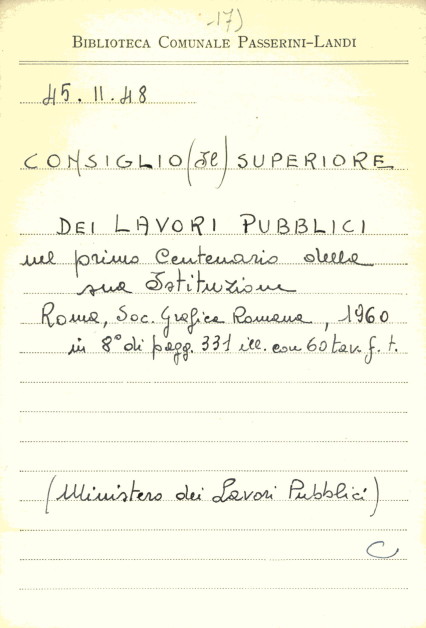 -17)
BIBLIOTECA COMUNALE PASSERINI-LANDI
45.II.48
CONSIGLIO (Il) SUPERIORE
DEI LAVORI PUBBLICI
nel primo Centenario della
sua Istituzione
Roma, Soc. Grafica Romana, 1960
in 8° di pagg. 331 ill. con 60 tav. f. t.
(Ministero dei Lavori Pubblici)
C